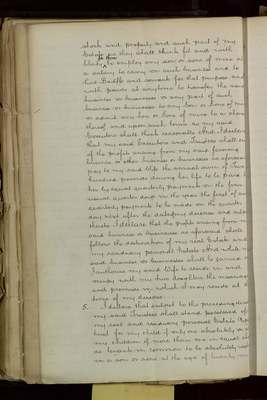 stock and property and such part of my
Estate as they shall think fit and with
liberty for them to employ any son or sons of mine at
a salary to carry on such business and to
have and
with power at anytime to transfer the said
business or businesses or any part of such
business or businesses to any son or sons of mine
or admit any son or sons of mine to a share
thereof and upon such terms as my said
Executors shall think reasonable And I declare
that my said Executors and Trustees shall out
of the profits arising from my said farming
business or other business or businesses as aforesaid
pay to my said wife the annual sum of
hundred pounds during her life to be paid to
her by equal quarterly payments on the four
usual quarter days in the year the first of such
quarterly payments to be made on the quarter
day next after my decease and subject
thereto I declare that the profits arising from my
said business or businesses as aforesaid shall
follow the destination of my real Estate and
my residuary personal Estate And while my
said business or businesses shall be carried on
I authorise my said wife to reside in and
occupy with my two daughters the messuage
and premises in which I may reside at the
time of my decease
5. I declare that subject to the preceding
my said Trustees shall stand possessed of
my real and residuary personal Estate Upon
trust for my child if only one absolutely or all
my children if more than one in equal shares
as tenants in common to be absolutely vested
in a son or sons at the age of twenty one